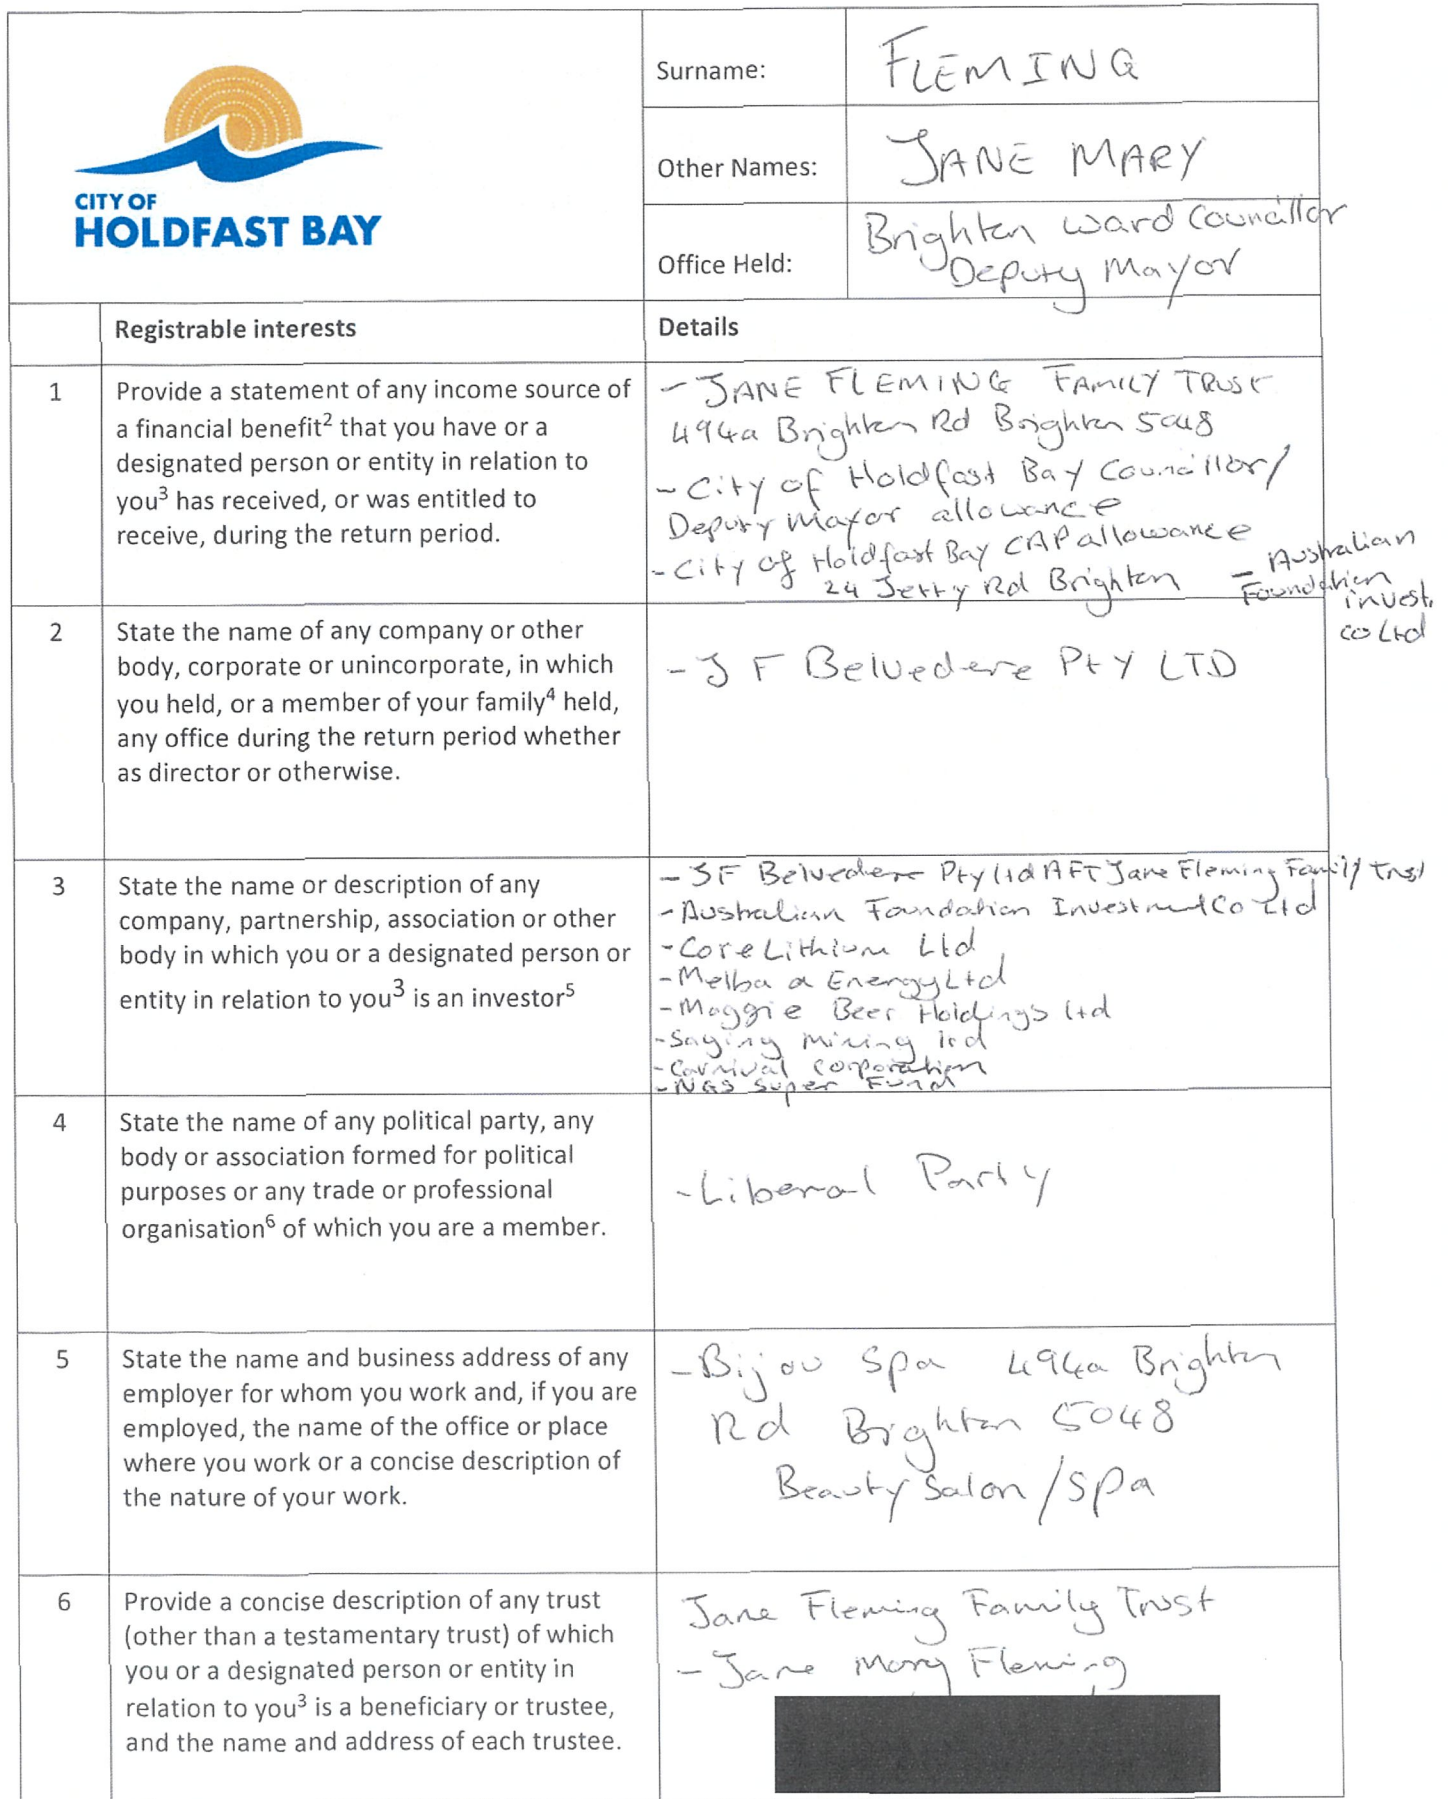 CITY OF
HOLDFAST BAY
Surname: FLEMING
Other Names: JANE MARY
Office Held: Brighton ward Councillor
Deputy Mayor
Registrable interests Details
1 Provide a statement of any income source of
a financial benefit² that you have or a
designated person or entity in relation to
you³ has received, or was entitled to
receive, during the return period.
- JANE FLEMING FAMILY TRUST
494a Brighton Rd Brighton 5048
- City of Holdfast Bay Councillor/
Deputy Mayor allowance
- City of Holdfast Bay CAP allowance
24 Jetty Rd Brighton
- Australian
Foundation
invest.
co Ltd
2 State the name of any company or other
body, corporate or unincorporate, in which
you held, or a member of your family⁴ held,
any office during the return period whether
as director or otherwise.
- J F Belvedere Pty LTD
3 State the name or description of any
company, partnership, association or other
body in which you or a designated person or
entity in relation to you³ is an investor⁵
- JF Belvedere Pty Ltd AFT Jane Fleming Family Trust
- Australian Foundation Investment Co Ltd
- Core Lithium Ltd
- Melba a Energy Ltd
- Maggie Beer Holdings Ltd
- Mining Ltd
- Carnival Corporation
- NGS Super Fund
4 State the name of any political party, any
body or association formed for political
purposes or any trade or professional
organisation⁶ of which you are a member.
- Liberal Party
5 State the name and business address of any
employer for whom you work and, if you are
employed, the name of the office or place
where you work or a concise description of
the nature of your work.
- Bijou Spa 494a Brighton
Rd Brighton 5048
Beauty Salon/Spa
6 Provide a concise description of any trust
(other than a testamentary trust) of which
you or a designated person or entity in
relation to you³ is a beneficiary or trustee,
and the name and address of each trustee.
Jane Fleming Family Trust
- Jane Mary Fleming